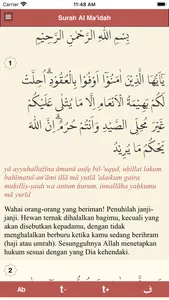 11:48 AM
Surah Al Ma'idah
بِسْمِ اللّٰهِ الرَّحْمٰنِ الرَّحِيْمِ
1
يٰٓاَيُّهَا الَّذِيْنَ اٰمَنُوْٓا اَوْفُوْا بِالْعُقُوْدِۗ اُحِلَّتْ
لَكُمْ بَهِيْمَةُ الْاَنْعَامِ اِلَّا مَا يُتْلٰى عَلَيْكُمْ
غَيْرَ مُحِلِّى الصَّيْدِ وَاَنْتُمْ حُرُمٌۗ اِنَّ اللّٰهَ
يَحْكُمُ مَا يُرِيْدُ
yā ayyuhallażīna āmanū aufụ bil-'uqụd, uḥillat lakum
bahīmatul-an'āmi illā mā yutlā 'alaikum gaira
muḥilliṣ-ṣaidi wa antum ḥurum, innallāha yaḥkumu
mā yurīd
Wahai orang-orang yang beriman! Penuhilah janji-
janji. Hewan ternak dihalalkan bagimu, kecuali yang
akan disebutkan kepadamu, dengan tidak
menghalalkan berburu ketika kamu sedang berihram
(haji atau umrah). Sesungguhnya Allah menetapkan
hukum sesuai dengan yang Dia kehendaki.
2
Ab
t-
t+
ف